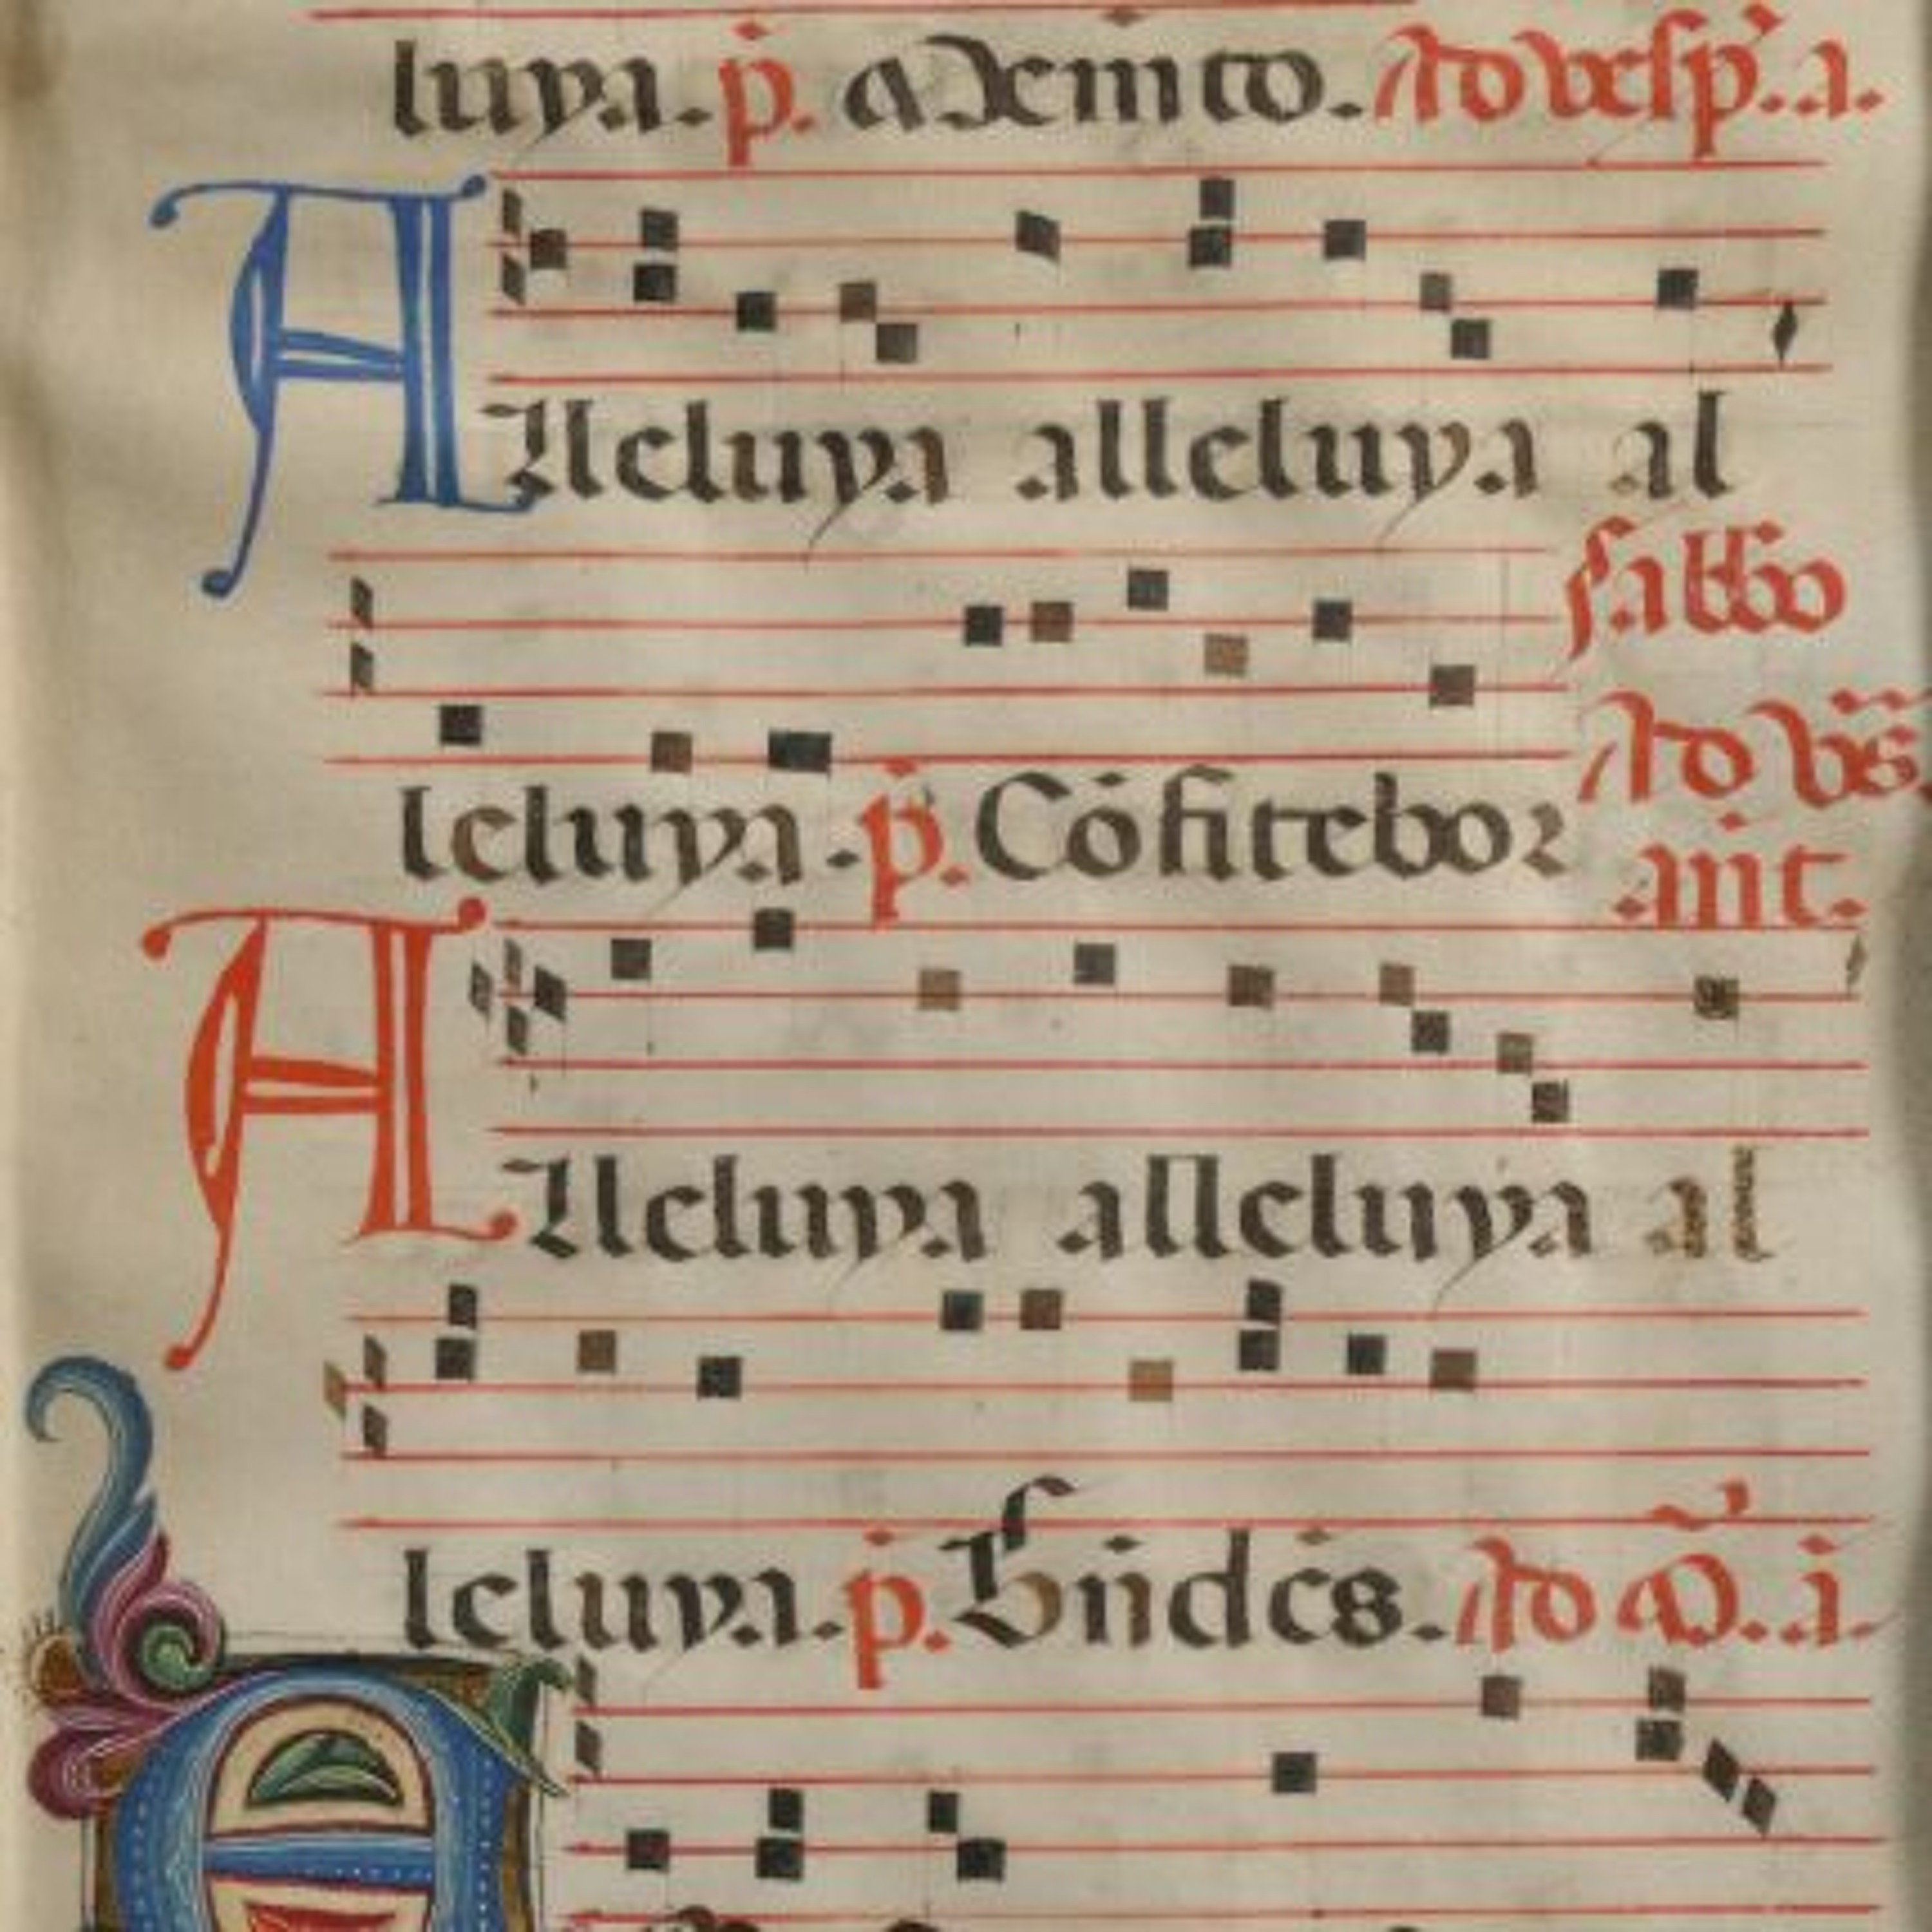 luya. p. Memto. Ad vesp. a.
Alleluya alleluya al
sabbo
leluya. p. Cofitebor
Ad vs. ant.
Alleluya alleluya al
leluya. p. Bndcs. Ad M. i.